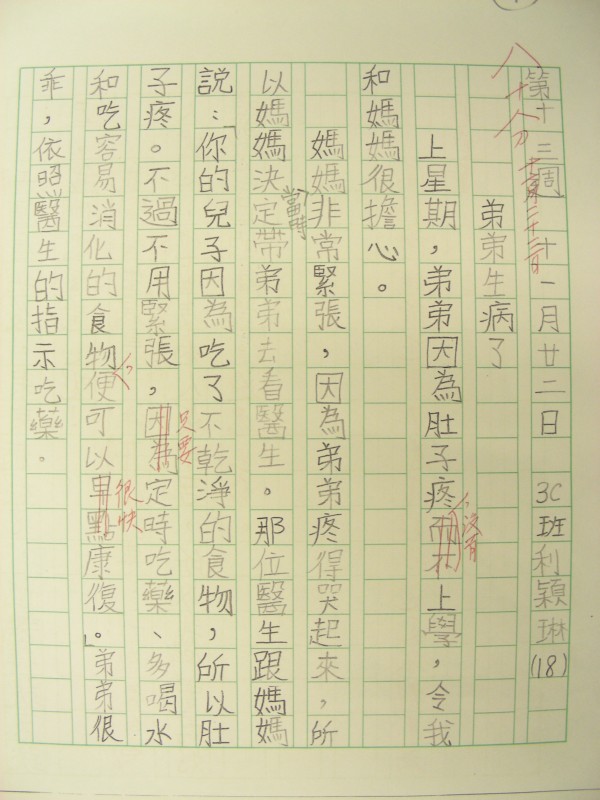 第十三周 十一月廿二日 3C班利穎琳(18)
八十分
弟弟生病了
上星期，弟弟因為肚子疼而在上學，令我
，沒有
和媽媽很擔心。
媽媽非常緊張，因為弟弟疼得哭起來，所
以媽媽決定帶弟弟去看醫生。那位醫生跟媽媽
當時
說：「你的兒子因為吃了不乾淨的食物，所以肚
子疼。不過不用緊張，因為定時吃藥、多喝水
只要
和吃容易消化的食物便可以早點康復。」弟弟很
，
很快
乖，依照醫生的指示吃藥。